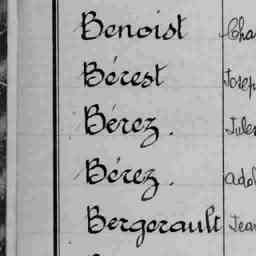 Benoist Cha
Bérest Josep
Bérez. Jules
Bérez. adol
Bergerault Jean